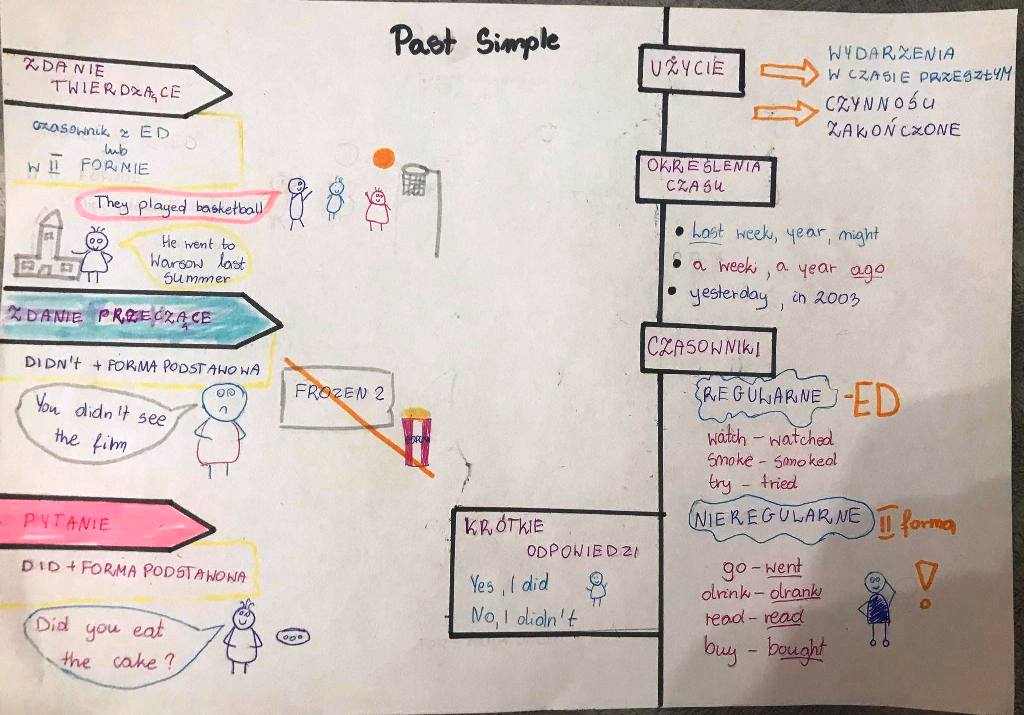 Past Simple
ZDANIE
TWIERDZĄCE
czasownik z ED
lub
w II FORMIE
They played basketball
He went to
Warsow last
summer
ZDANIE PRZECZĄCE
DIDN't + FORMA PODSTAWOWA
You didn't see
the film
FROZEN 2
PYTANIE
DID + FORMA PODSTAWOWA
Did you eat
the cake?
KRÓTKIE
ODPOWIEDZI
Yes, I did
No, I didn't
UŻYCIE
WYDARZENIA
W CZASIE PRZESZŁYM
CZYNNOŚCI
ZAKOŃCZONE
OKREŚLENIA
CZASU
• Last week, year, night
• a week, a year ago
• yesterday, in 2003
CZASOWNIKI
REGULARNE - ED
watch - watched
smoke - smoked
try - tried
NIEREGULARNE II forma
go - went
drink - drank
read - read
buy - bought
!